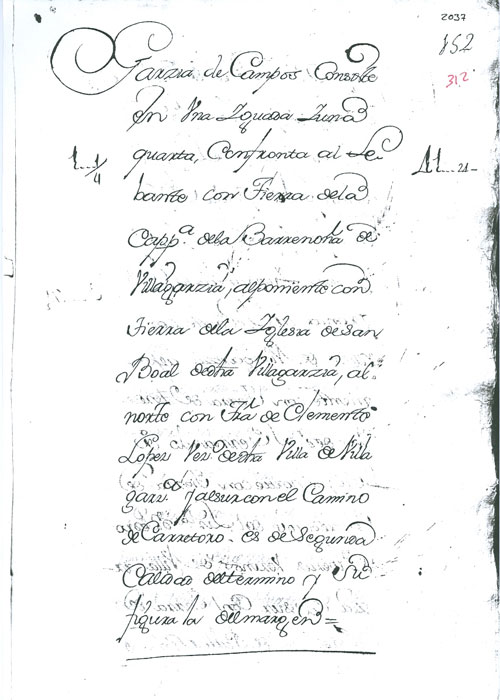 2037
852
312
Garzia de Campos Consiste
En Vna Iguada Iuna
quarta, Confronta al Le
1..1/4
11...21..
bante con Tierra dela
Capp.ª dela Barrenoña de
Villagarzia, alponiente con
Tierra dela Iglesia de San
Boal dedha Villagarzia, al
norte con Trã de Clemente
Lopez Vez.º dedha Villa de Villa
garz.ª Y alsur con el Camino
de Carretero. es de Segunda
Calidad deltermino y Su
figura la delmargen=